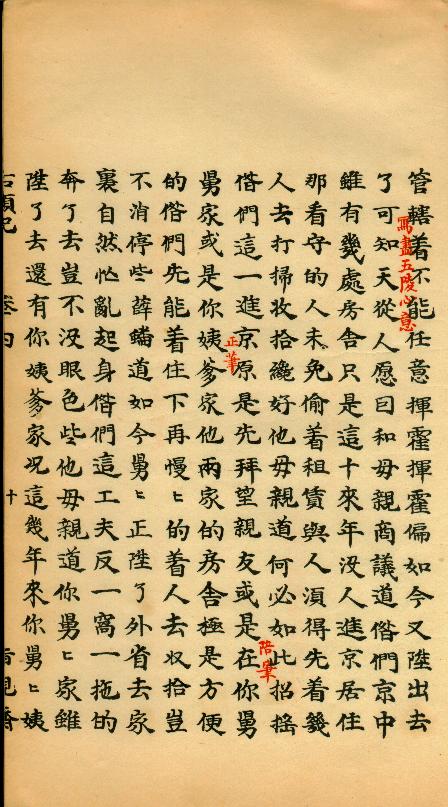 管轄着不能任意揮霍揮霍偏如今又陞出去
寫盡五陵心意
了可知天從人愿曰和母親商議道偺們京中
雖有幾處房舍只是這十來年没人進京居住
那看守的人未免偷着租賃與人湏得先着幾
人去打掃收拾纔好他母親道何必如此招摇
陪筆
偺們這一進京原是先拜望親友或是在你舅
正筆
舅家或是你姨爹家他兩家的房舍極是方便
的偺們先能着住下再慢ヒ的着人去収拾豈
不消停些薛蟠道如今舅ヒ正陞了外省去家
裏自然忙亂起身偺們這工夫反一窩一拖的
奔了去豈不没眼色些他母親道你舅ヒ家雖
陞了去還有你姨爹家况這幾年來你舅ヒ姨
石頭記 卷四 十